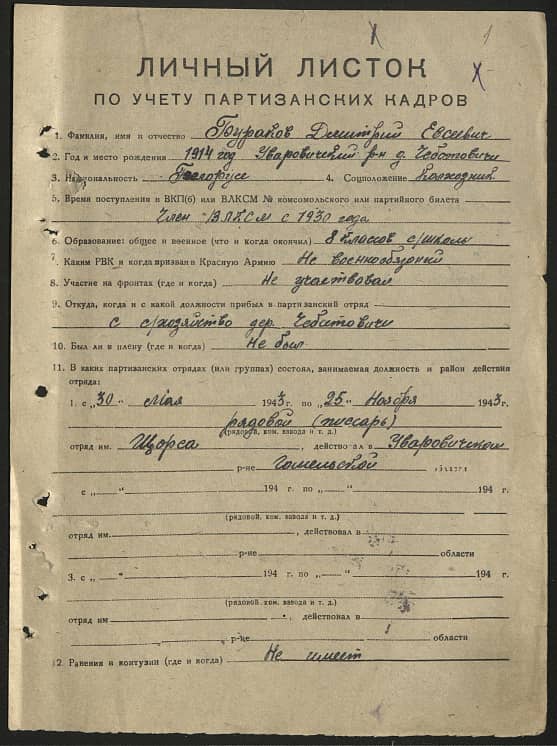 ЛИЧНЫЙ ЛИСТОК
ПО УЧЕТУ ПАРТИЗАНСКИХ КАДРОВ
1. Фамилия, имя и отчество Бураков Дмитрий Евсеевич
2. Год и место рождения 1914 год Уваровичский р-н д. Чеботовичи
3. Национальность Белорус 4. Соцположение Колхозник
5. Время поступления в ВКП(б) или ВЛКСМ № комсомольского или партийного билета
Член ВЛКСМ с 1930 года
6. Образование: общее и военное (что и когда окончил) 8 классов с/школы
7. Каким РВК и когда призван в Красную Армию Не военнообязаный
8. Участие на фронтах (где и когда) Не участвовал
9. Откуда, когда и с какой должности прибыл в партизанский отряд
с с/хозяйство дер. Чеботовичи
10. Был ли в плену (где и когда) Не был
11. В каких партизанских отрядах (или группах) состоял, занимаемая должность и район действия
отряда:
1. с „30“ мая 1943 г. по „25“ Ноября 1943 г.
рядовой (писсарь)
(рядовой, ком. взвода и т. д.)
отряд им. Щорса, действовал в Уваровичском
р-не гомельской области
с „ “ 194 г. по „ “ 194 г.
(рядовой, ком. взвода и т. д.)
отряд им. , действовал в
р-не области
3. с „ “ 194 г. по „ “ 194 г.
(рядовой, ком. взвода и т. д.)
отряд им , действовал в
р-не области
12. Ранения и контузии (где и когда) Не имеет